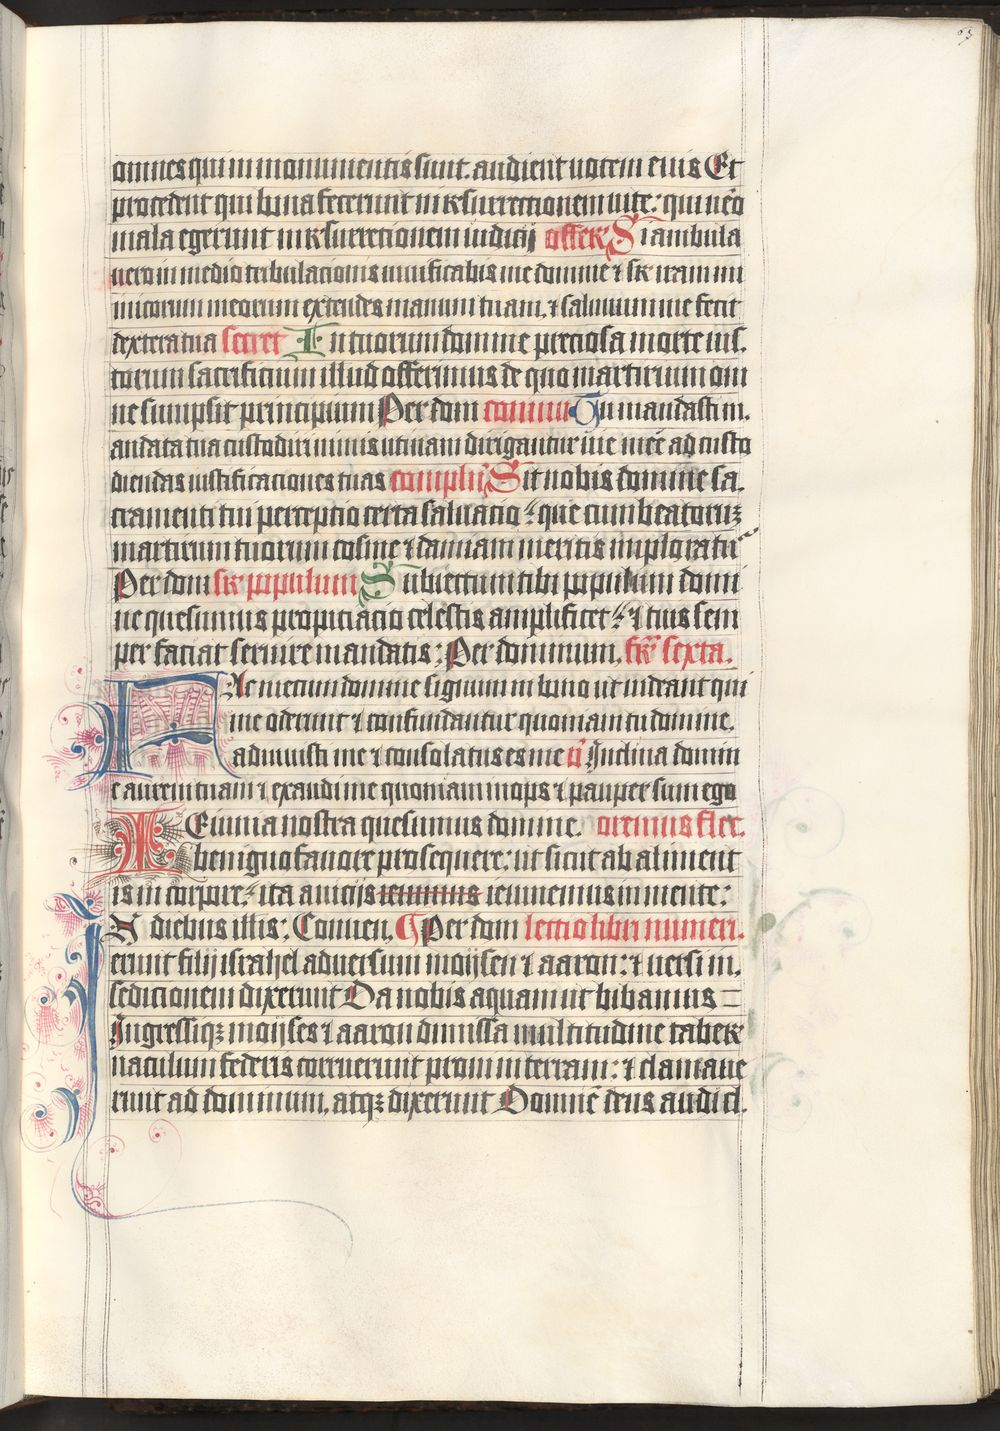 63
omnes qui in monumentis sunt. audient vocem eius Et
procedent qui bona fecerunt in resurrectionem vite: qui v̄o
mala egerunt in resurrectionem iudicij offer Si ambula
vero in medio tribulacionis vivificabis me domine ⁊ sr̄ iram ini
micorum meorum extendes manum tuam. ⁊ salvum me fecit
dextera tua secret In tuorum domine preciosa morte ius.
torum sacrificium illud offerimus de quo martirium om
ne sumpsit principium Per dom commu Tu mandasti m.
andata tua custodiri nimis utinam dirigantur vie mee ad custo
diendas iustificaciones tuas complen Sit nobis domine sa.
cramenti tui perceptio certa salvacio: que cum beatorum
martirum tuorum cosme ⁊ damiani meritis imploratur
Per dom sr̄ populum Subiectum tibi populum domi
ne quesumus propiciacio celestis amplificet: ⁊ tuis sem
per faciat servire mandatis: Per dominum. fr̄ sexta.
Fac mecum domine signum in bono ut videant qui
me oderunt ⁊ confundantur quoniam tu domine.
adiuvisti me ⁊ consolatus es me p̄ Inclina domin
e aurem tuam ⁊ exaudi me quoniam inops ⁊ pauper sum ego
IEiunia nostra quesumus domine. oremus flec.
benigno favore prosequere: ut sicut ab aliment
is in corpore: ita a vicijs ieiunius ieiunemus in mente:
In diebus illis: Conven. Per dom lectio libri numeri.
erunt filij israhel adversum moijsen ⁊ aaron: ⁊ versi in.
sedicionem dixerunt Da nobis aquam ut bibamus
Ingressiqꝫ moijses ⁊ aaron dimissa multitudine taber
naculum federis corruerunt proni in terram: ⁊ clamave
runt ad dominum. atqꝫ dixerunt Domine deus audi cl.